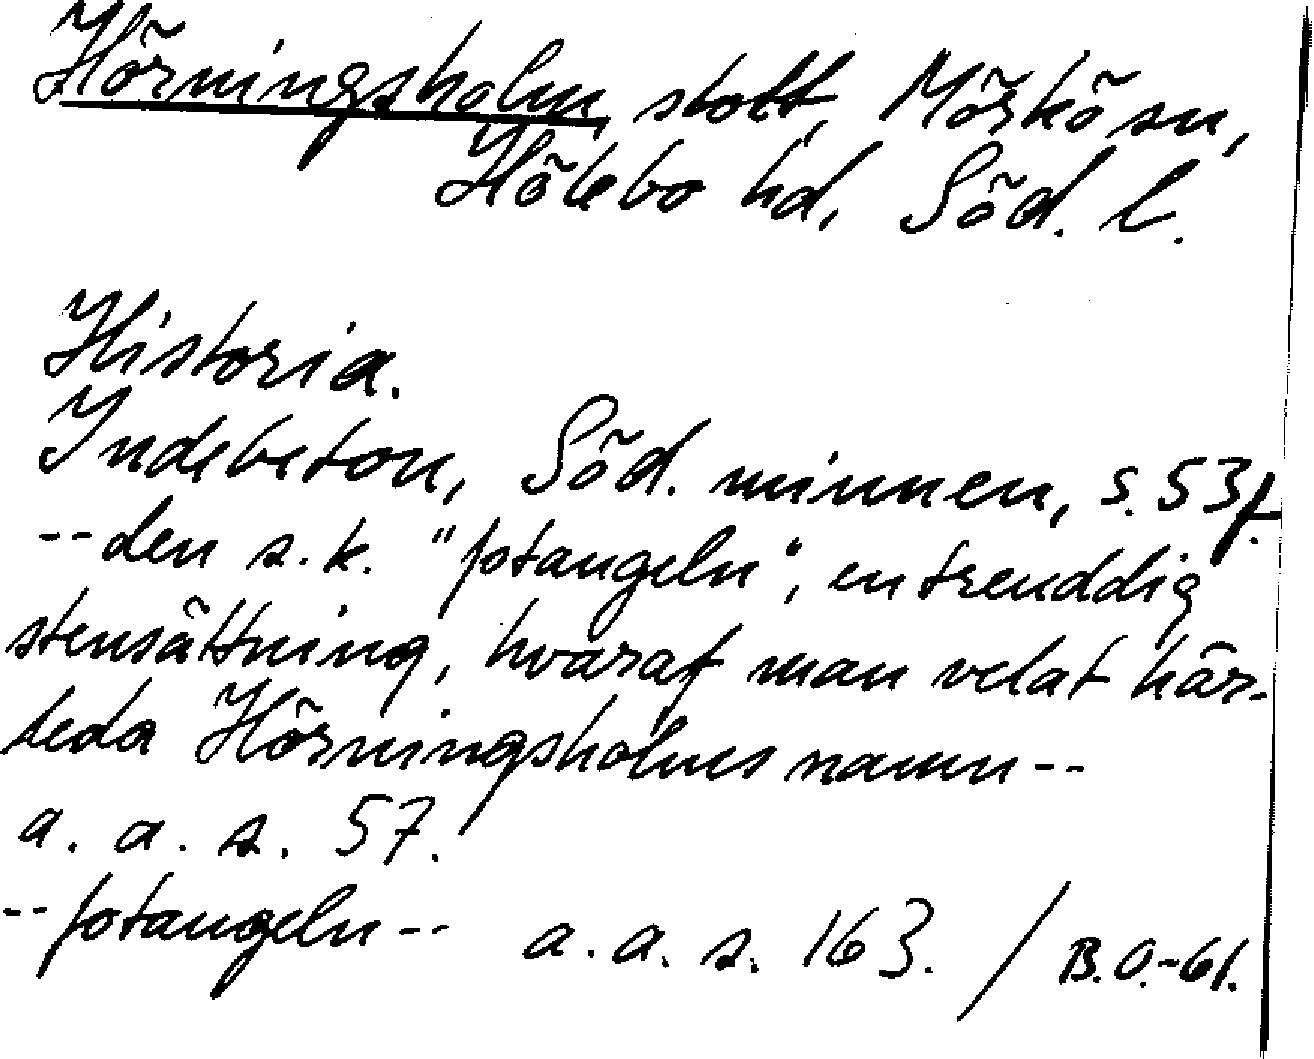 Hörningsholm, slott, Mörkö sn,
Hölebo hd, Söd. l.
Historia.
Indebetou, Söd. minnen, s. 53f.
--den s.k. "fotangeln", en treuddig
stensättning, hvaraf man velat här-
leda Hörningsholms namn--
a. a. s. 57.
--fotangeln-- a. a. s. 163. / B.O.-61.